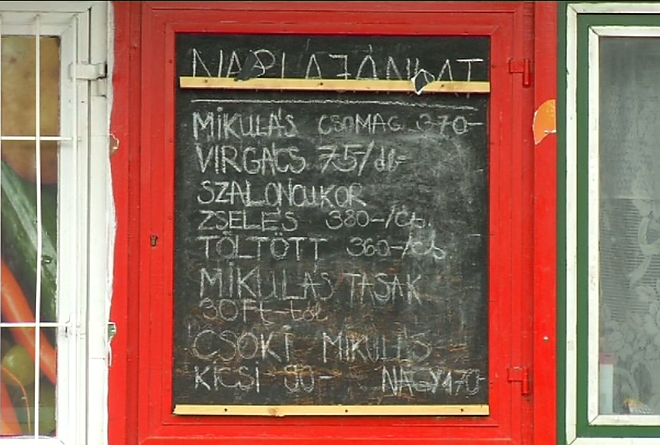 NAPI AJÁNLAT
MIKULÁS CSOMAG 370-
VIRGÁCS 75/db-
SZALONCUKOR
ZSELÉS 380-/Cs.
TÖLTÖTT 360-/Cs
MIKULÁS TASAK
30Ft-tól
CSOKI MIKULÁS
KICSI 90- NAGY 170-